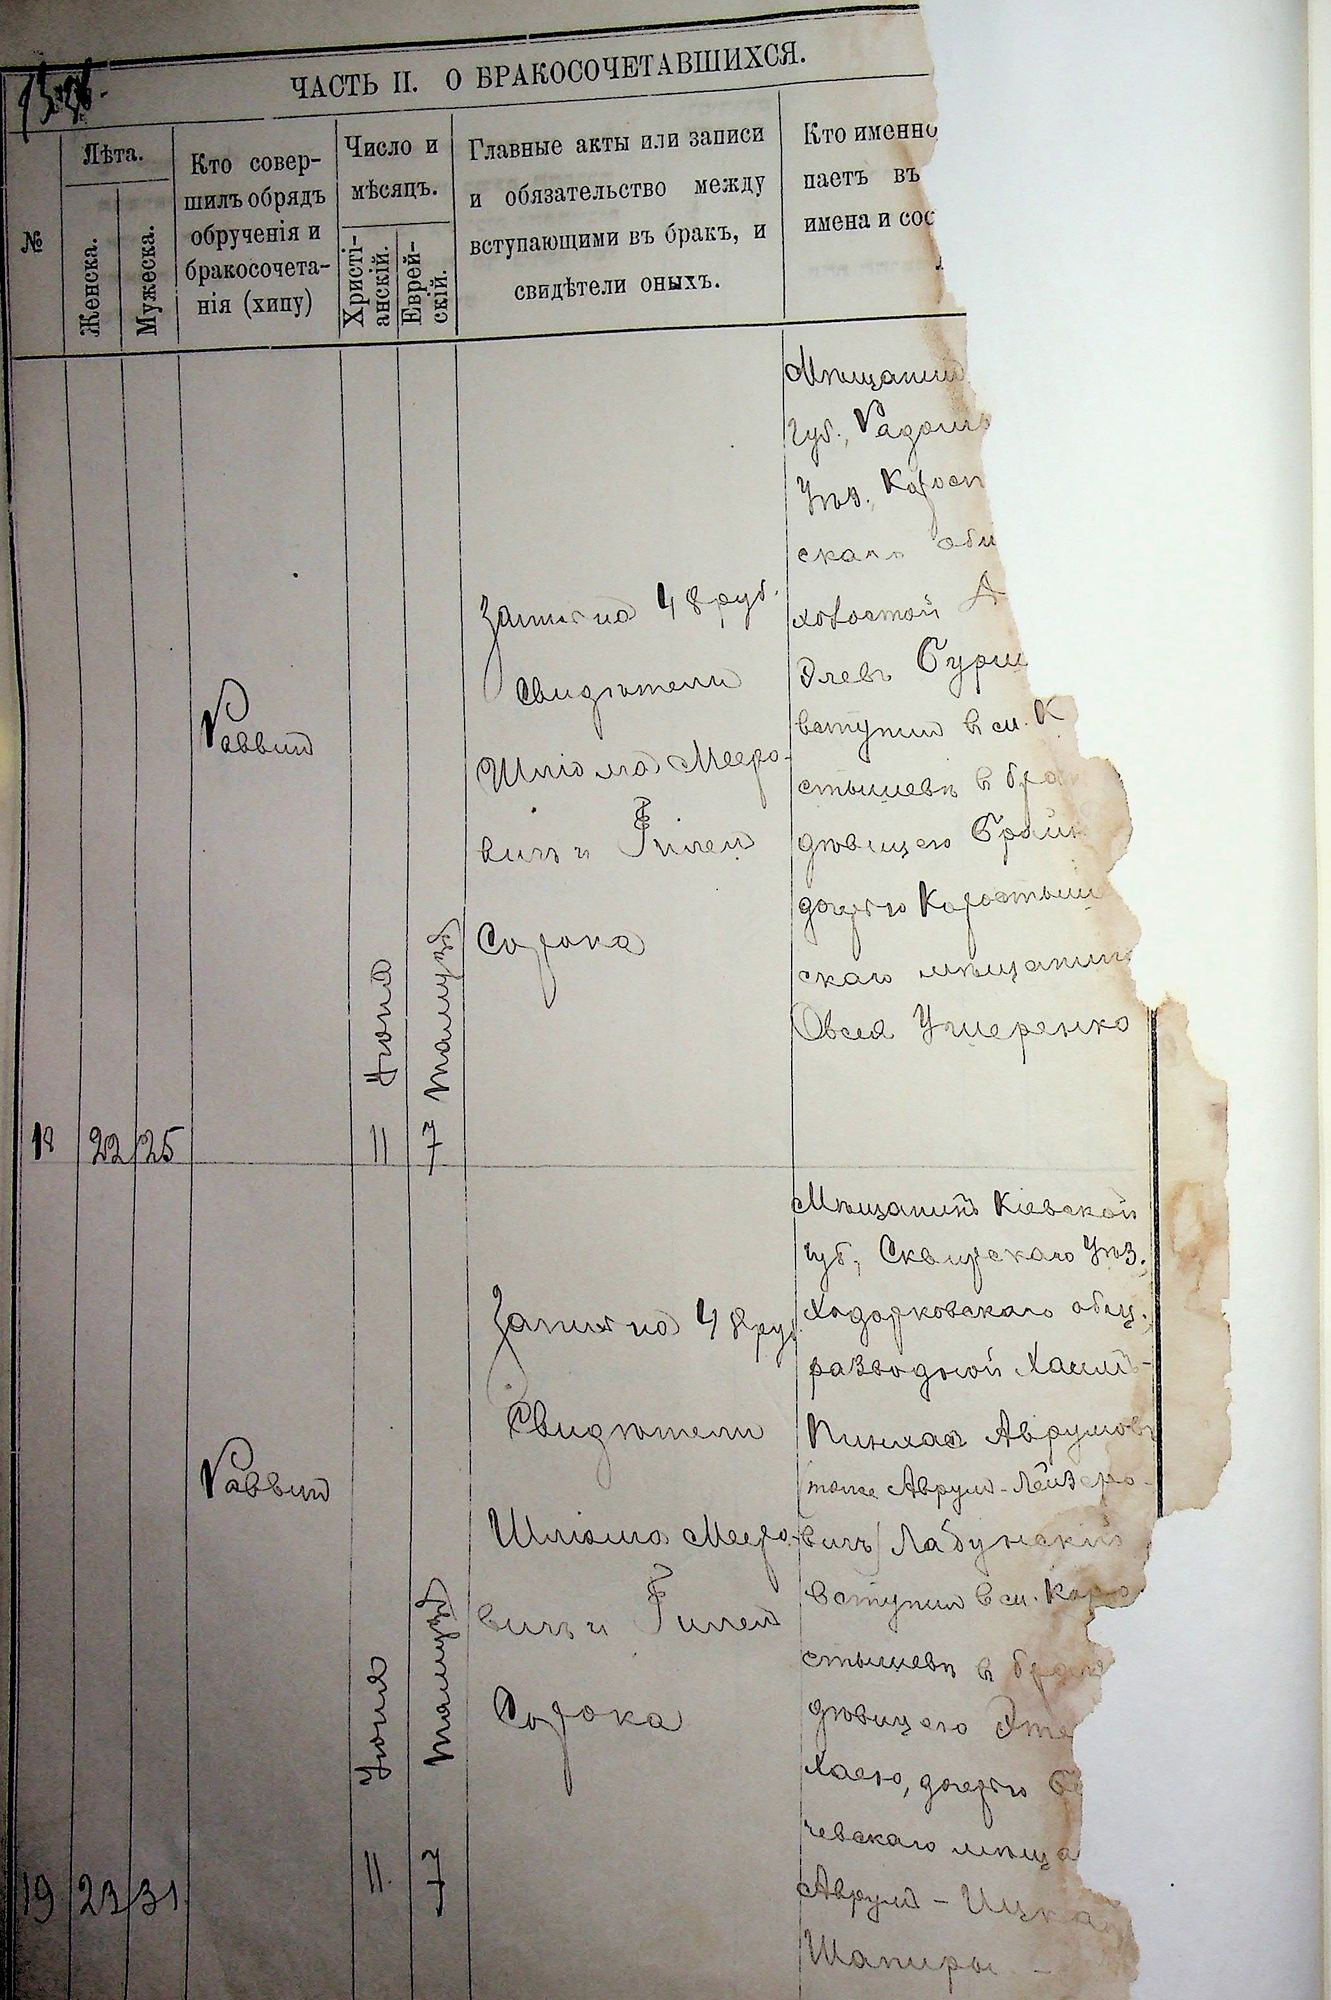 ЧАСТЬ II. О БРАКОСОЧЕТАВШИХСЯ.
№
Лѣта.
Женска.
Мужеска.
Кто совер-
шилъ обрядъ
обрученія и
бракосочета-
нія (хипу)
Число и
мѣсяцъ.
Христі-
анскій.
Еврей-
скій.
Главные акты или записи
и обязательство между
вступающими въ бракъ, и
свидѣтели оныхъ.
Кто именно
паетъ въ
имена и сос
18
22
25
Раввин
11 Июня
7 Тамуза
Запись на 48 руб.
Свидѣтели
Шліома Мееро-
вичъ и Гилел
Сорока
Мѣщанин
губ., Радом
Уѣз. Корост
скаго общ
холостой А
Элевъ Бурш
вступил в м. К
стышевѣ в бра
дѣвицею Брай
дочерью Коростыш
скаго мѣщанин
Овсея Ушеренко
19
23
31
Раввин
11 Июня
7 Тамуза
Запись на 48 руб.
Свидѣтели
Шліома Мееро-
вичъ и Гилел
Сорока
Мѣщанинъ Кіевской
губ., Сквирскаго Уѣз.,
Ходорковскаго общ.,
разводной Хаимъ-
Пинхас Аврумов
(тоже Аврум-Лейзеро-
вичъ) Лабунский
вступил в м. Коро
стышевѣ в брак
дѣвицею Эте
Хаею, дочерью Б
чевскаго мѣща
Аврум-Ицка
Шапиры